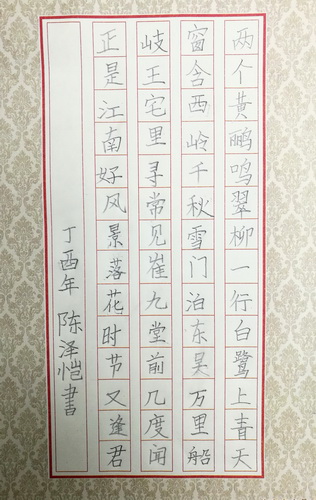 两个黄鹂鸣翠柳一行白鹭上青天
窗含西岭千秋雪门泊东吴万里船
岐王宅里寻常见崔九堂前几度闻
正是江南好风景落花时节又逢君
丁酉年 陈泽恺书